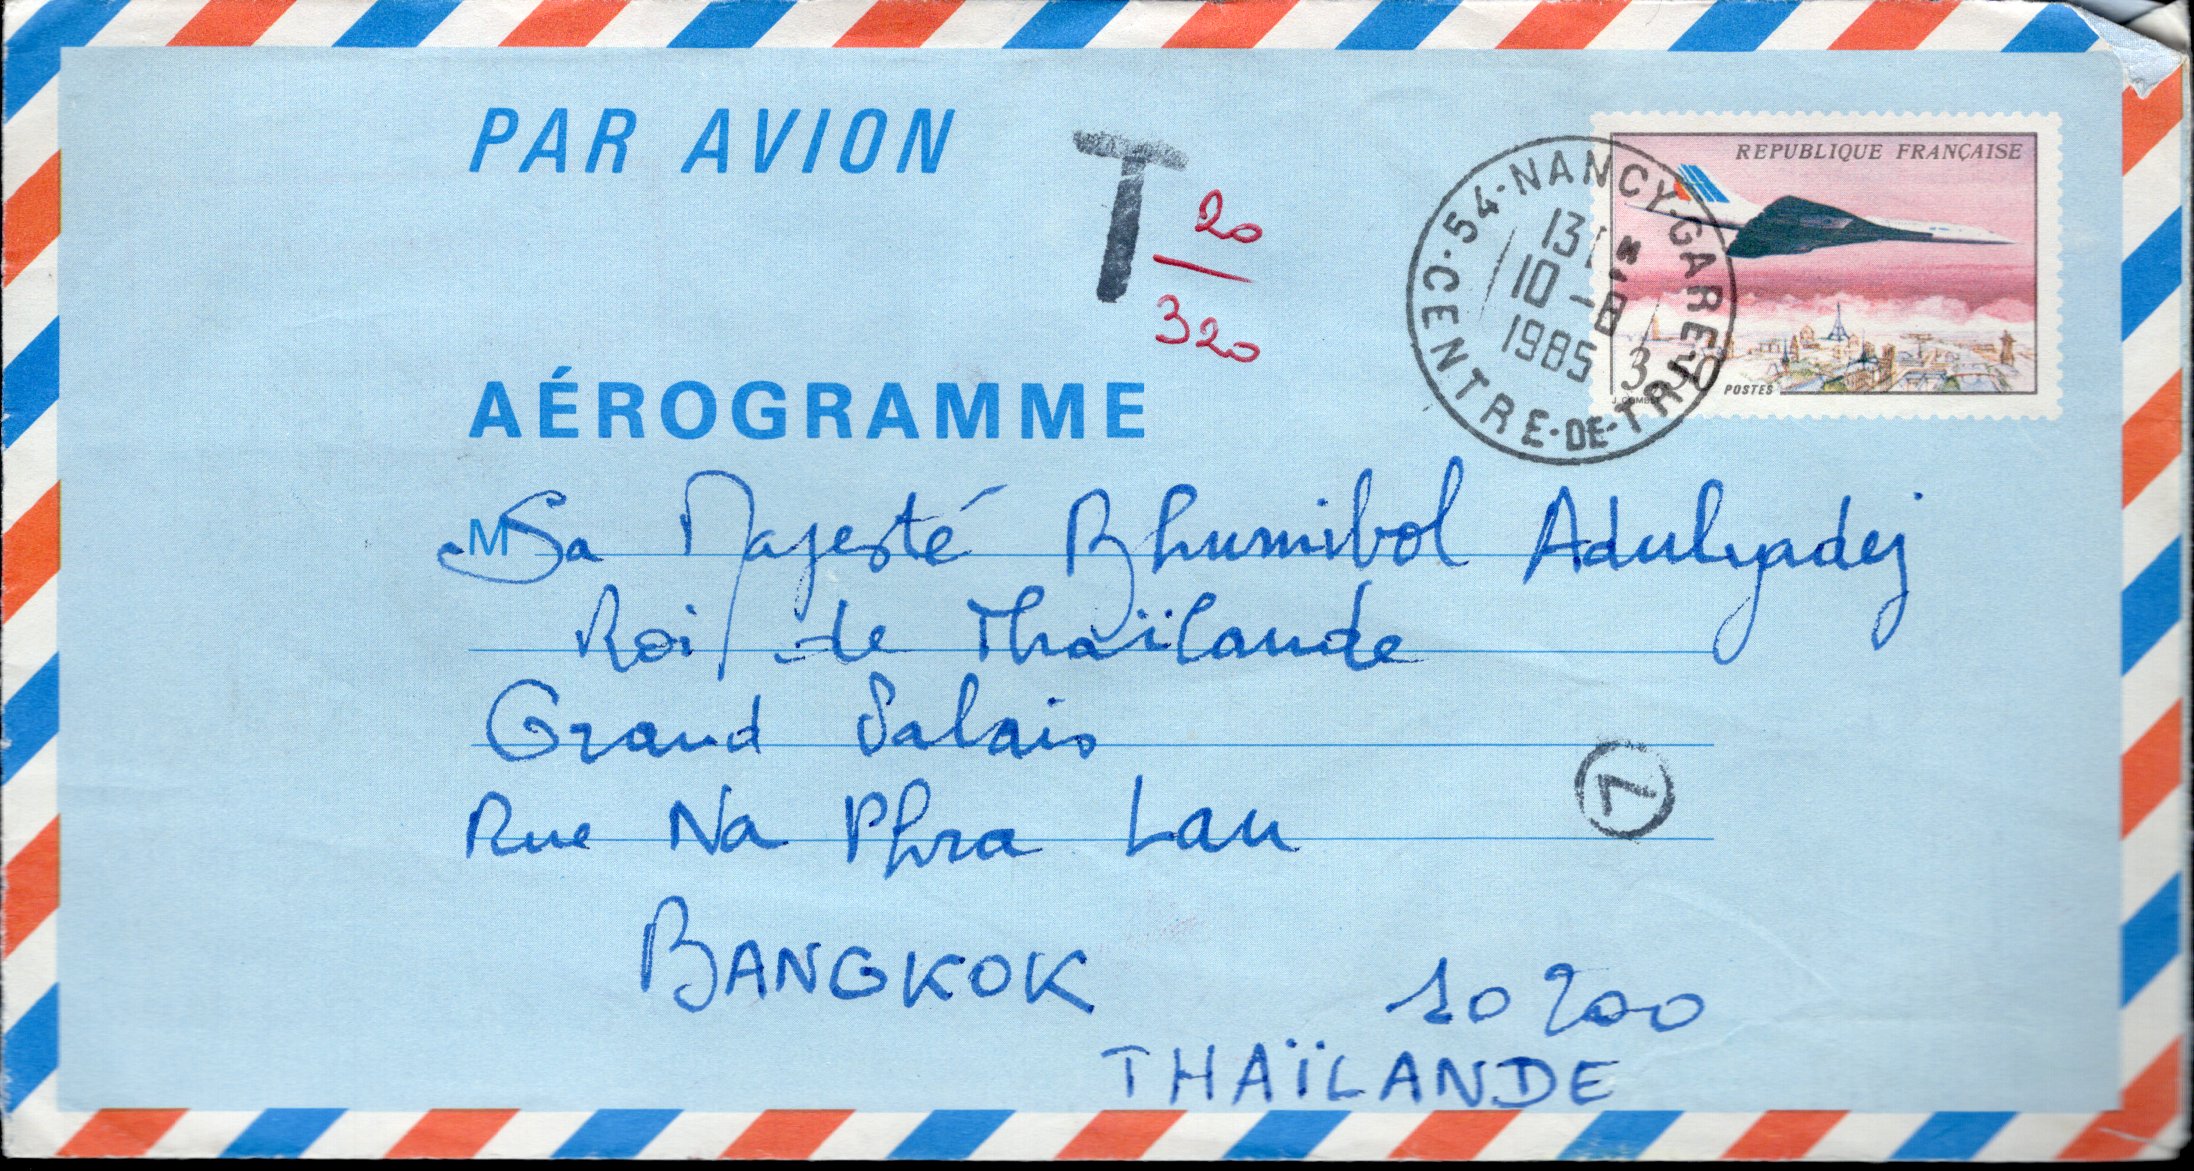 PAR AVION
T 20
320
54-NANCY-GARE
13H
10-8
1985
CENTRE-DE-TRI
REPUBLIQUE FRANÇAISE
POSTES
AÉROGRAMME
M Sa Majesté Bhumibol Adulyadej
Roi de Thaïlande
Grand Palais
Rue Na Phra Lau
7
BANGKOK 10200
THAÏLANDE